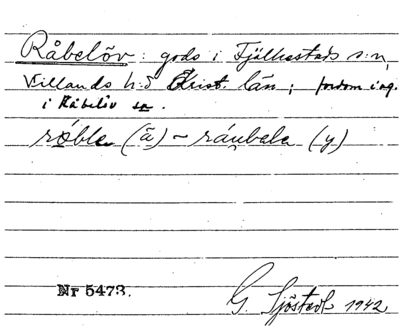 Råbelöv: gods i Fjälkestads s:n,
Villands h:d Krist. län; fordom ing.
i Råbelöv sn.
råble (ä) ~ råubela (y)
Nr 5473.
G. Sjöstedt 1942